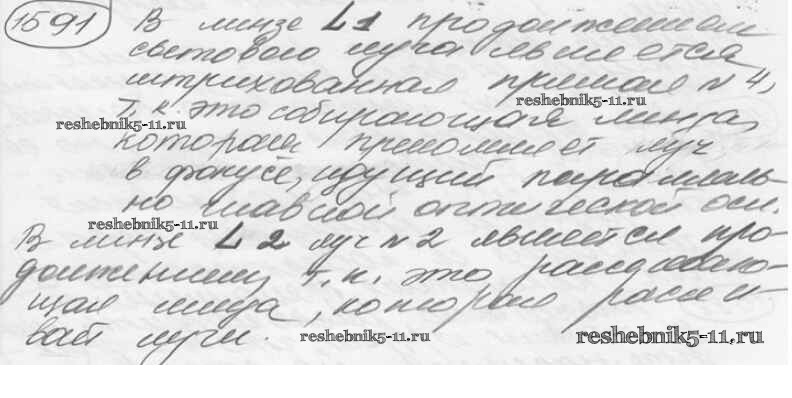 1591 В линзе L1 продолжением
светового луча является
штрихованная прямая №4,
reshebnik5-11.ru
т.к. это собирающая линза,
reshebnik5-11.ru
которая преломляет луч
в фокусе, идущий параллель-
но главной оптической оси.
reshebnik5-11.ru
В линзе L2 луч №2 является про-
должением т.к. это рассеиваю-
щая линза, которая рассеи-
вает лучи.
reshebnik5-11.ru
reshebnik5-11.ru